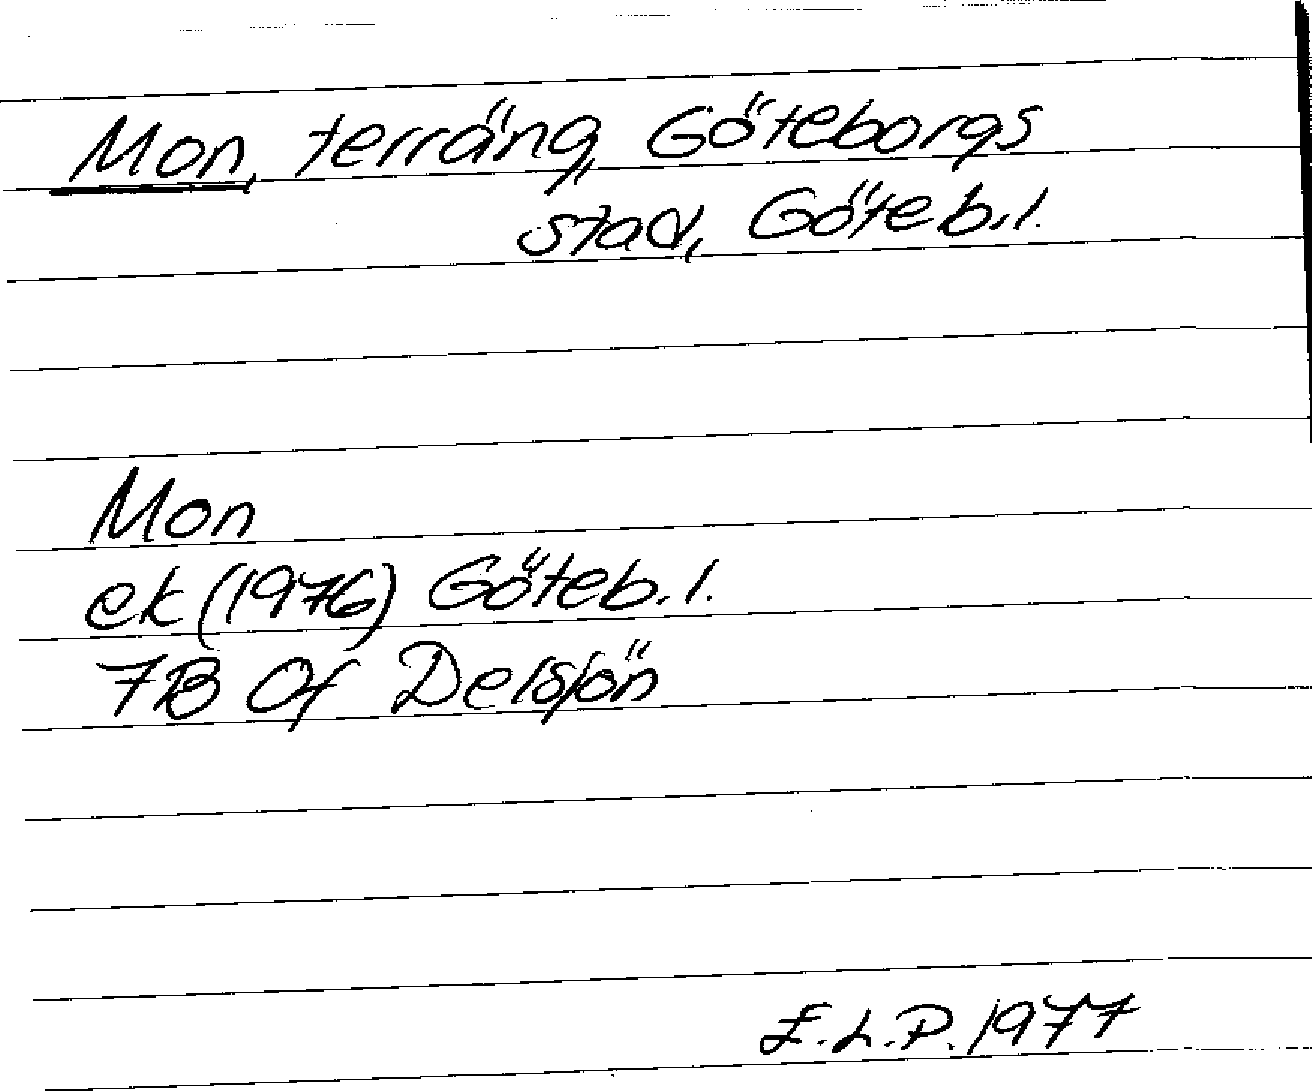 Mon, terräng, Göteborgs
stad, Göteb.l.
Mon
ek (1976) Göteb.l.
7B 0f Delsjön
E.L.P. 1977